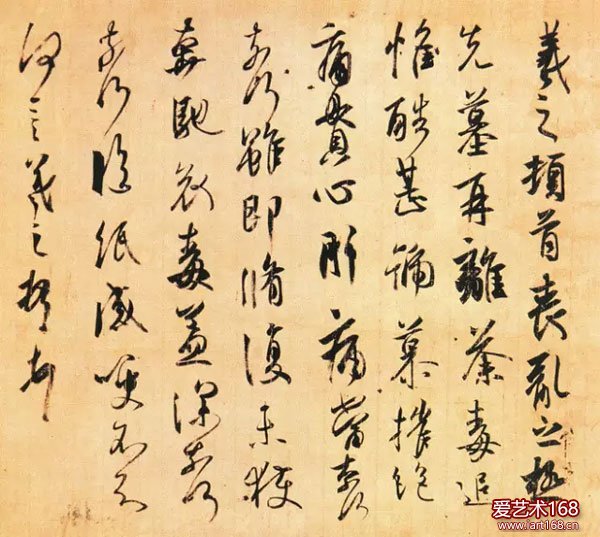 羲之頓首喪亂之極
先墓再離荼毒追
惟酷甚號慕摧絕
痛貫心肝痛當奈何
奈何雖即脩復未獲
奔馳哀毒益深奈何
奈何臨紙感哽不知
何言羲之頓首
爱艺术168
www.iart168.cn